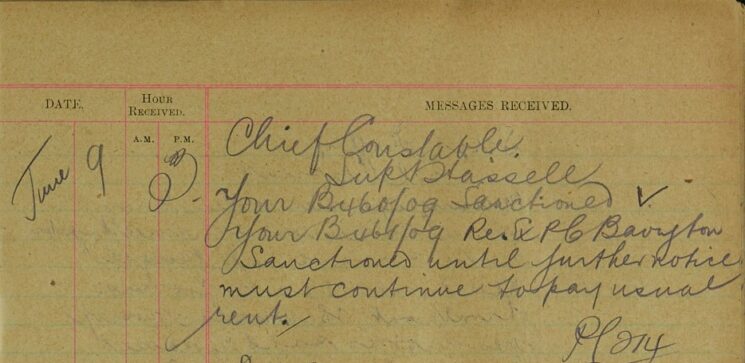 DATE.
HOUR RECEIVED.
MESSAGES RECEIVED.
A.M. P.M.
June 9
Chief Constable.
Supt Hassell
Your B460/09 Sanctioned ✓
Your B461/09 Re. Ex PC Bavington
Sanctioned until further notice
must continue to pay usual
rent.
PC 214